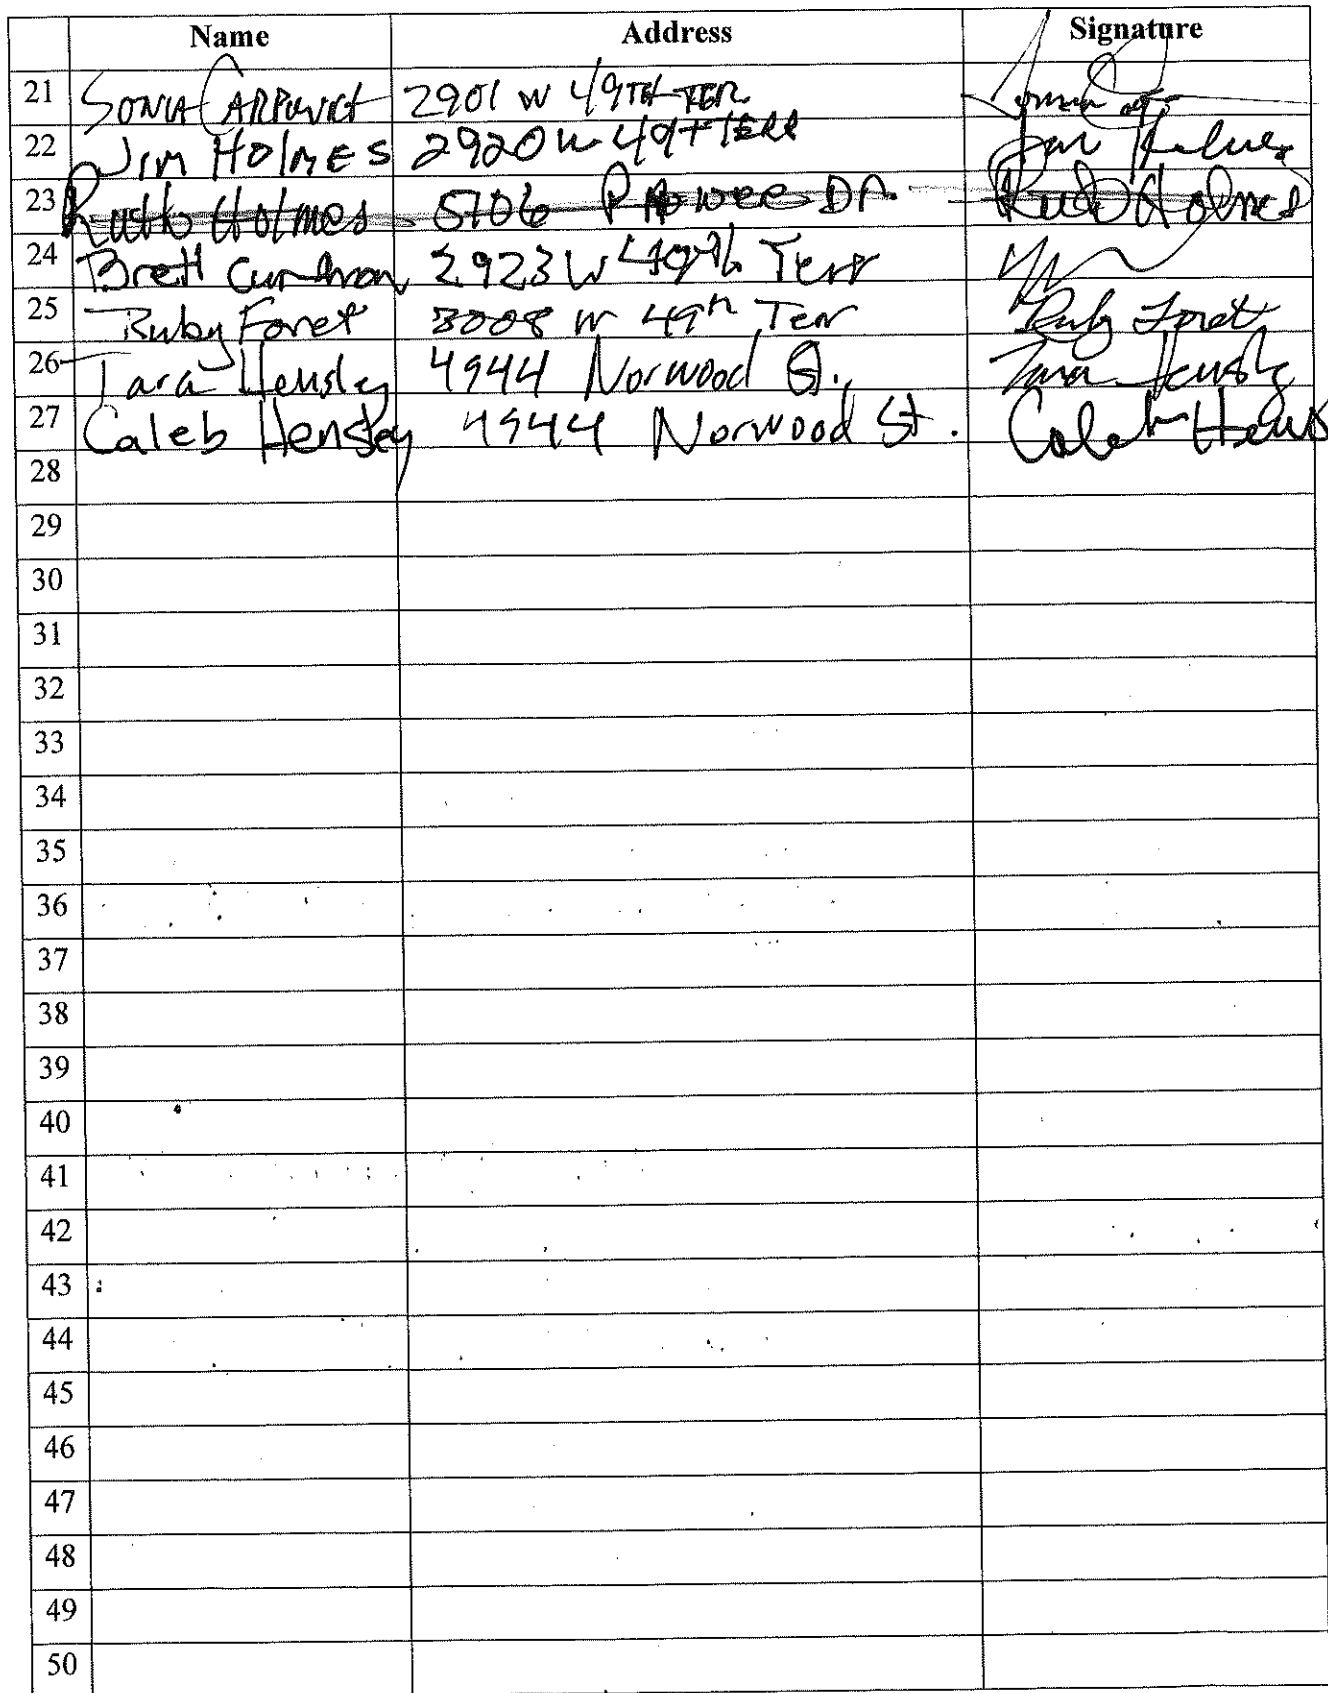 Name Address Signature
21 SONIA 2901 W 49TH TER
22 JIM HOLMES 2920 W 49TH TERR
23 Ruth Holmes 5106 DR. Ruth Holmes
24 Brett 2923 W 49th Terr
25 Ruby Foret 3008 W 49th Terr Ruby Foret
26 Tara Hensley 4944 Norwood St. Tara Hensley
27 Caleb Hensley 4944 Norwood St. Caleb Hens
28
29
30
31
32
33
34
35
36
37
38
39
40
41
42
43
44
45
46
47
48
49
50